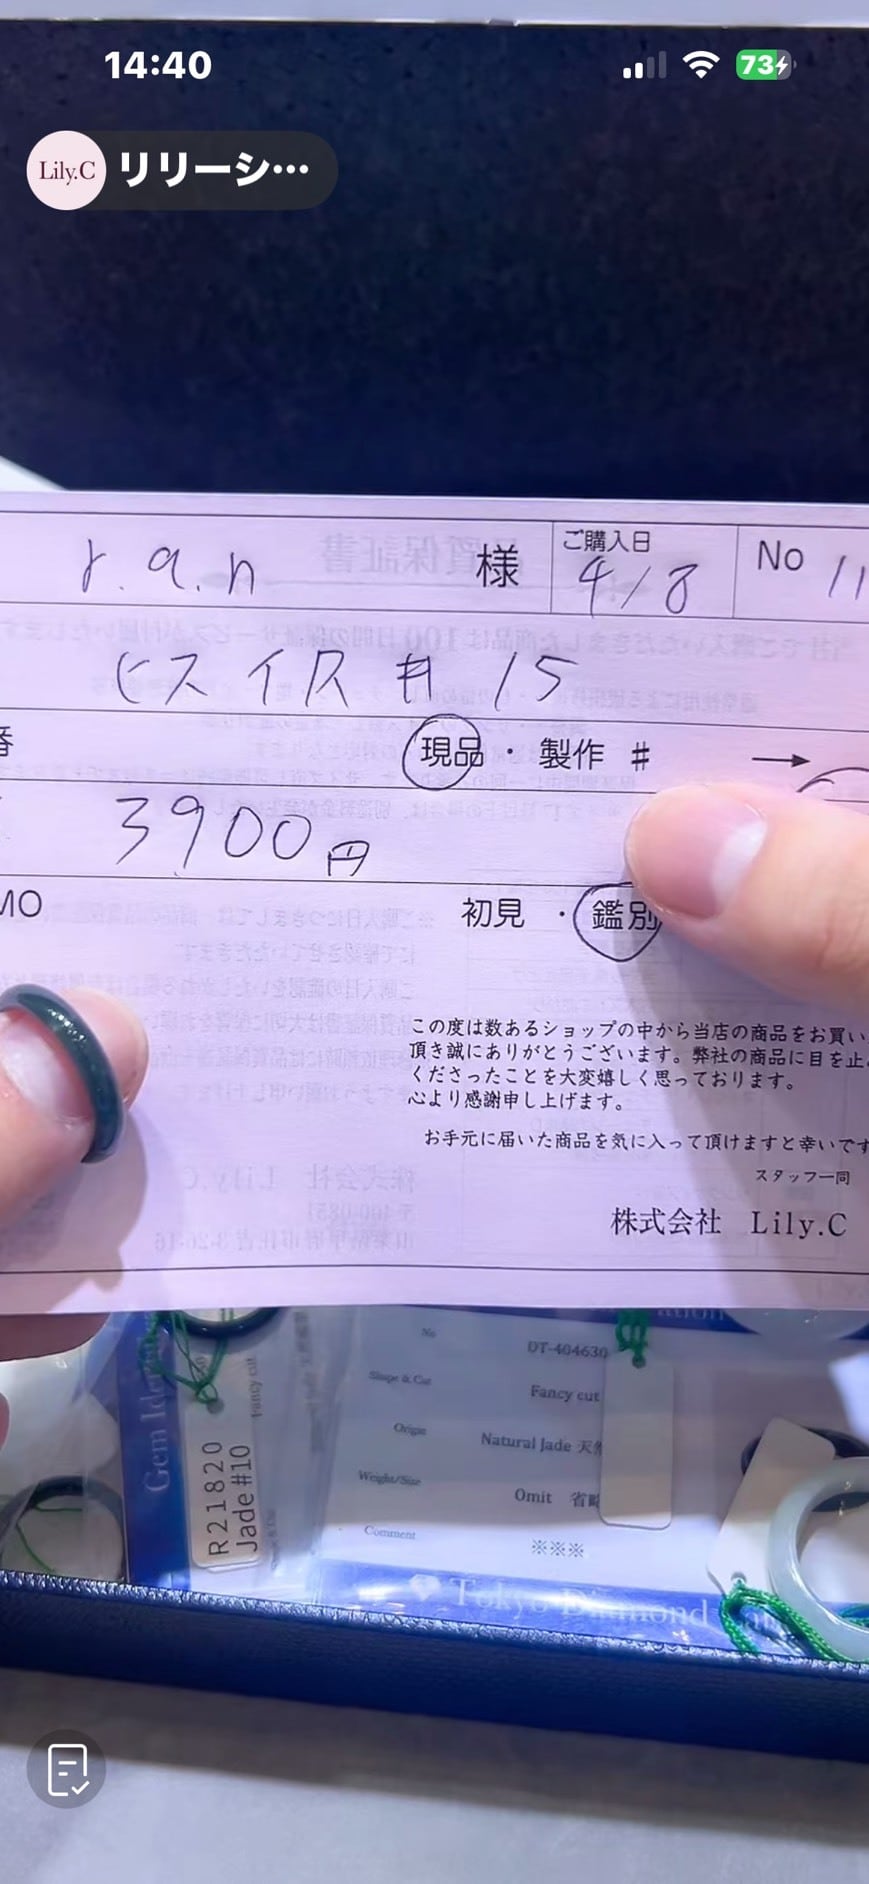 14:40
73
Lily.C リリーシ…
r.a.n 様
ご購入日
4/8
No 11
ヒスイ R # 15
現品 ・ 製作 # →
3900円
MO
初見 ・ 鑑別
この度は数あるショップの中から当店の商品をお買い
頂き誠にありがとうございます。弊社の商品に目を止
くださったことを大変嬉しく思っております。
心より感謝申し上げます。
お手元に届いた商品を気に入って頂けますと幸いです
スタッフ一同
株式会社 Lily.C
No DT-404630
Shape & Cut Fancy cut
Origin Natural Jade 天然
Weight/Size Omit 省略
Comment ※※※
Tokyo Diamond
Gem Iden
Fancy cut
R21820
Jade #10